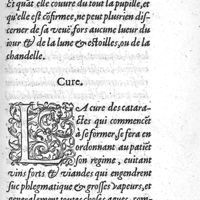 Et quãt elle couure du tout la pupille, et
qu'elle est cõfirmee, ne peut plus rien dis-
cerner de sa veuë, fors aucune lueur du
iour & de la lune & estoilles, ou de la
chandelle.
Cure.
LA cure des catara-
ctes qui commencēt
à se former, se fera en
ordonnant au patiēt
son regime, euitant
vins forts & viandes qui engendrent
suc phlegmatique & grosses vapeurs, et
generalement toutes choses